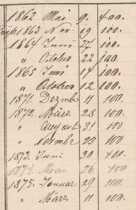 1862 Mai 9. 400.
1863 Nov 19 100.
1864 Juni 100.
" October 22 100.
1865 Juni 17 100.
" October 12 100.
1871 Dezember 11 100.
1872 März 28 100.
" August 21 100
" November 20 100
1873. Juni 20 400.
26 100.
1875. Januar 29 100.
" März 11 100.